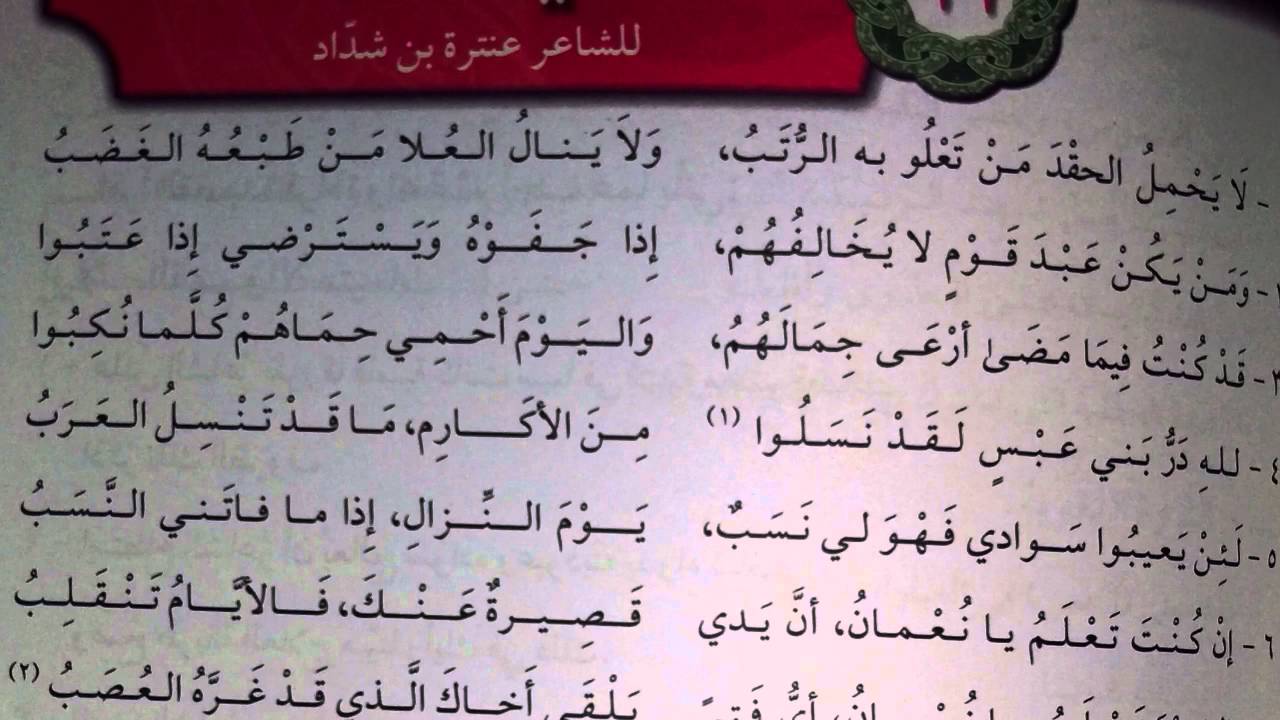 للشاعر عنترة بن شدّاد
- لَا يَحْمِلُ الحقْدَ مَنْ تَعْلُو به الرُّتَبُ، وَلاَ يَنالُ العُلا مَنْ طَبْعُهُ الغَضَبُ
- وَمَنْ يَكُنْ عَبْدَ قَوْمٍ لا يُخَالِفُهُمْ، إِذا جَفَوْهُ وَيَسْتَرْضي إِذا عَتَبُوا
٣- قَدْ كُنْتُ فِيمَا مَضَىٰ أرْعَى جِمَالَهُمُ، وَاليَوْمَ أَحْمِي حِمَاهُمْ كُلَّما نُكِبُوا
٤- للهِ دَرُّ بَني عَبْسٍ لَقَدْ نَسَلُوا (١) مِنَ الأكَارِمِ، مَا قَدْ تَنْسِلُ العَرَبُ
٥- لَئِنْ يَعيبُوا سَوادي فَهْوَ لي نَسَبٌ، يَوْمَ النِّزالِ، إِذا ما فاتَني النَّسَبُ
٦- إنْ كُنْتَ تَعْلَمُ يا نُعْمانُ، أنَّ يَدي قَصِيرةٌ عَنْكَ، فَالأيَّامُ تَنْقَلِبُ
أيُّ فَتىً يَلْقَى أخاكَ الَّذي قَدْ غَرَّهُ العُصَبُ (٢)